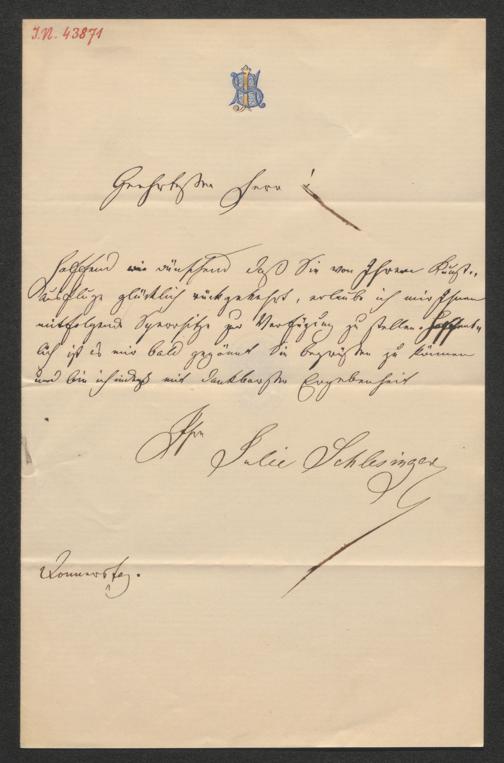 I.N. 43871
Geehrtester Herr!
Hoffend wie wünschend daß Sie von Ihrem Kunst-
ausfluge glücklich rückgekehrt, erlaube ich mir Ihnen
mitfolgend Sperrsitze zur Verfügung zu stellen. Hoffent-
lich ist es mir bald gegönnt Sie begrüßen zu können
und bin ich indeß mit dankbarster Ergebenheit
Ihre Julie Schlesinger
Donnerstag.